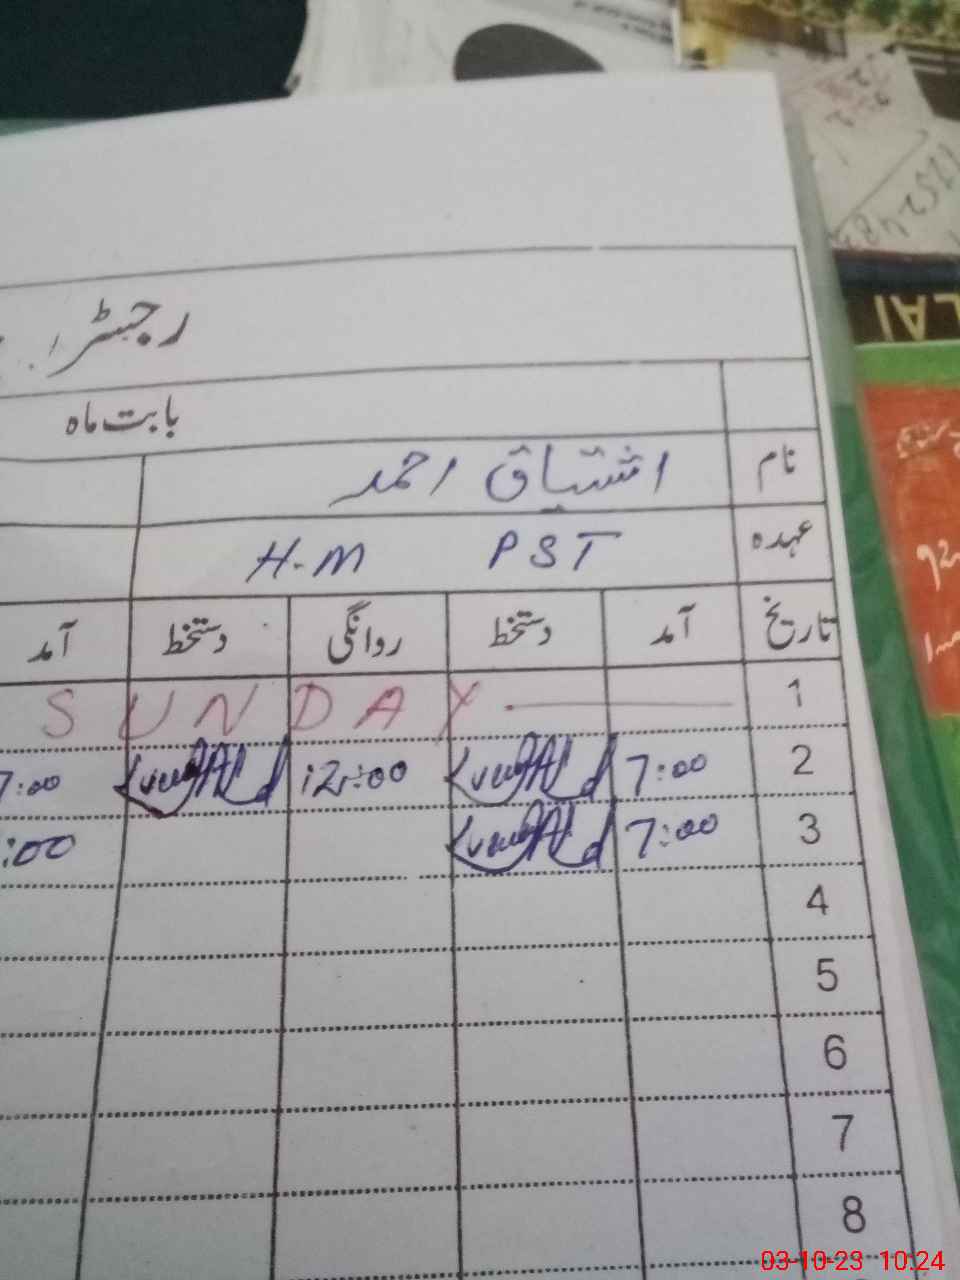 1352483
LAI
رجسٹر
بابت ماہ
نام اشتیاق احمد
عہدہ PST H.M
تاریخ آمد دستخط روانگی دستخط آمد
1 SUNDAY
2 7:00 12:00 7:00
3 7:00 :00
4
5
6
7
8
03-10-23 10:24